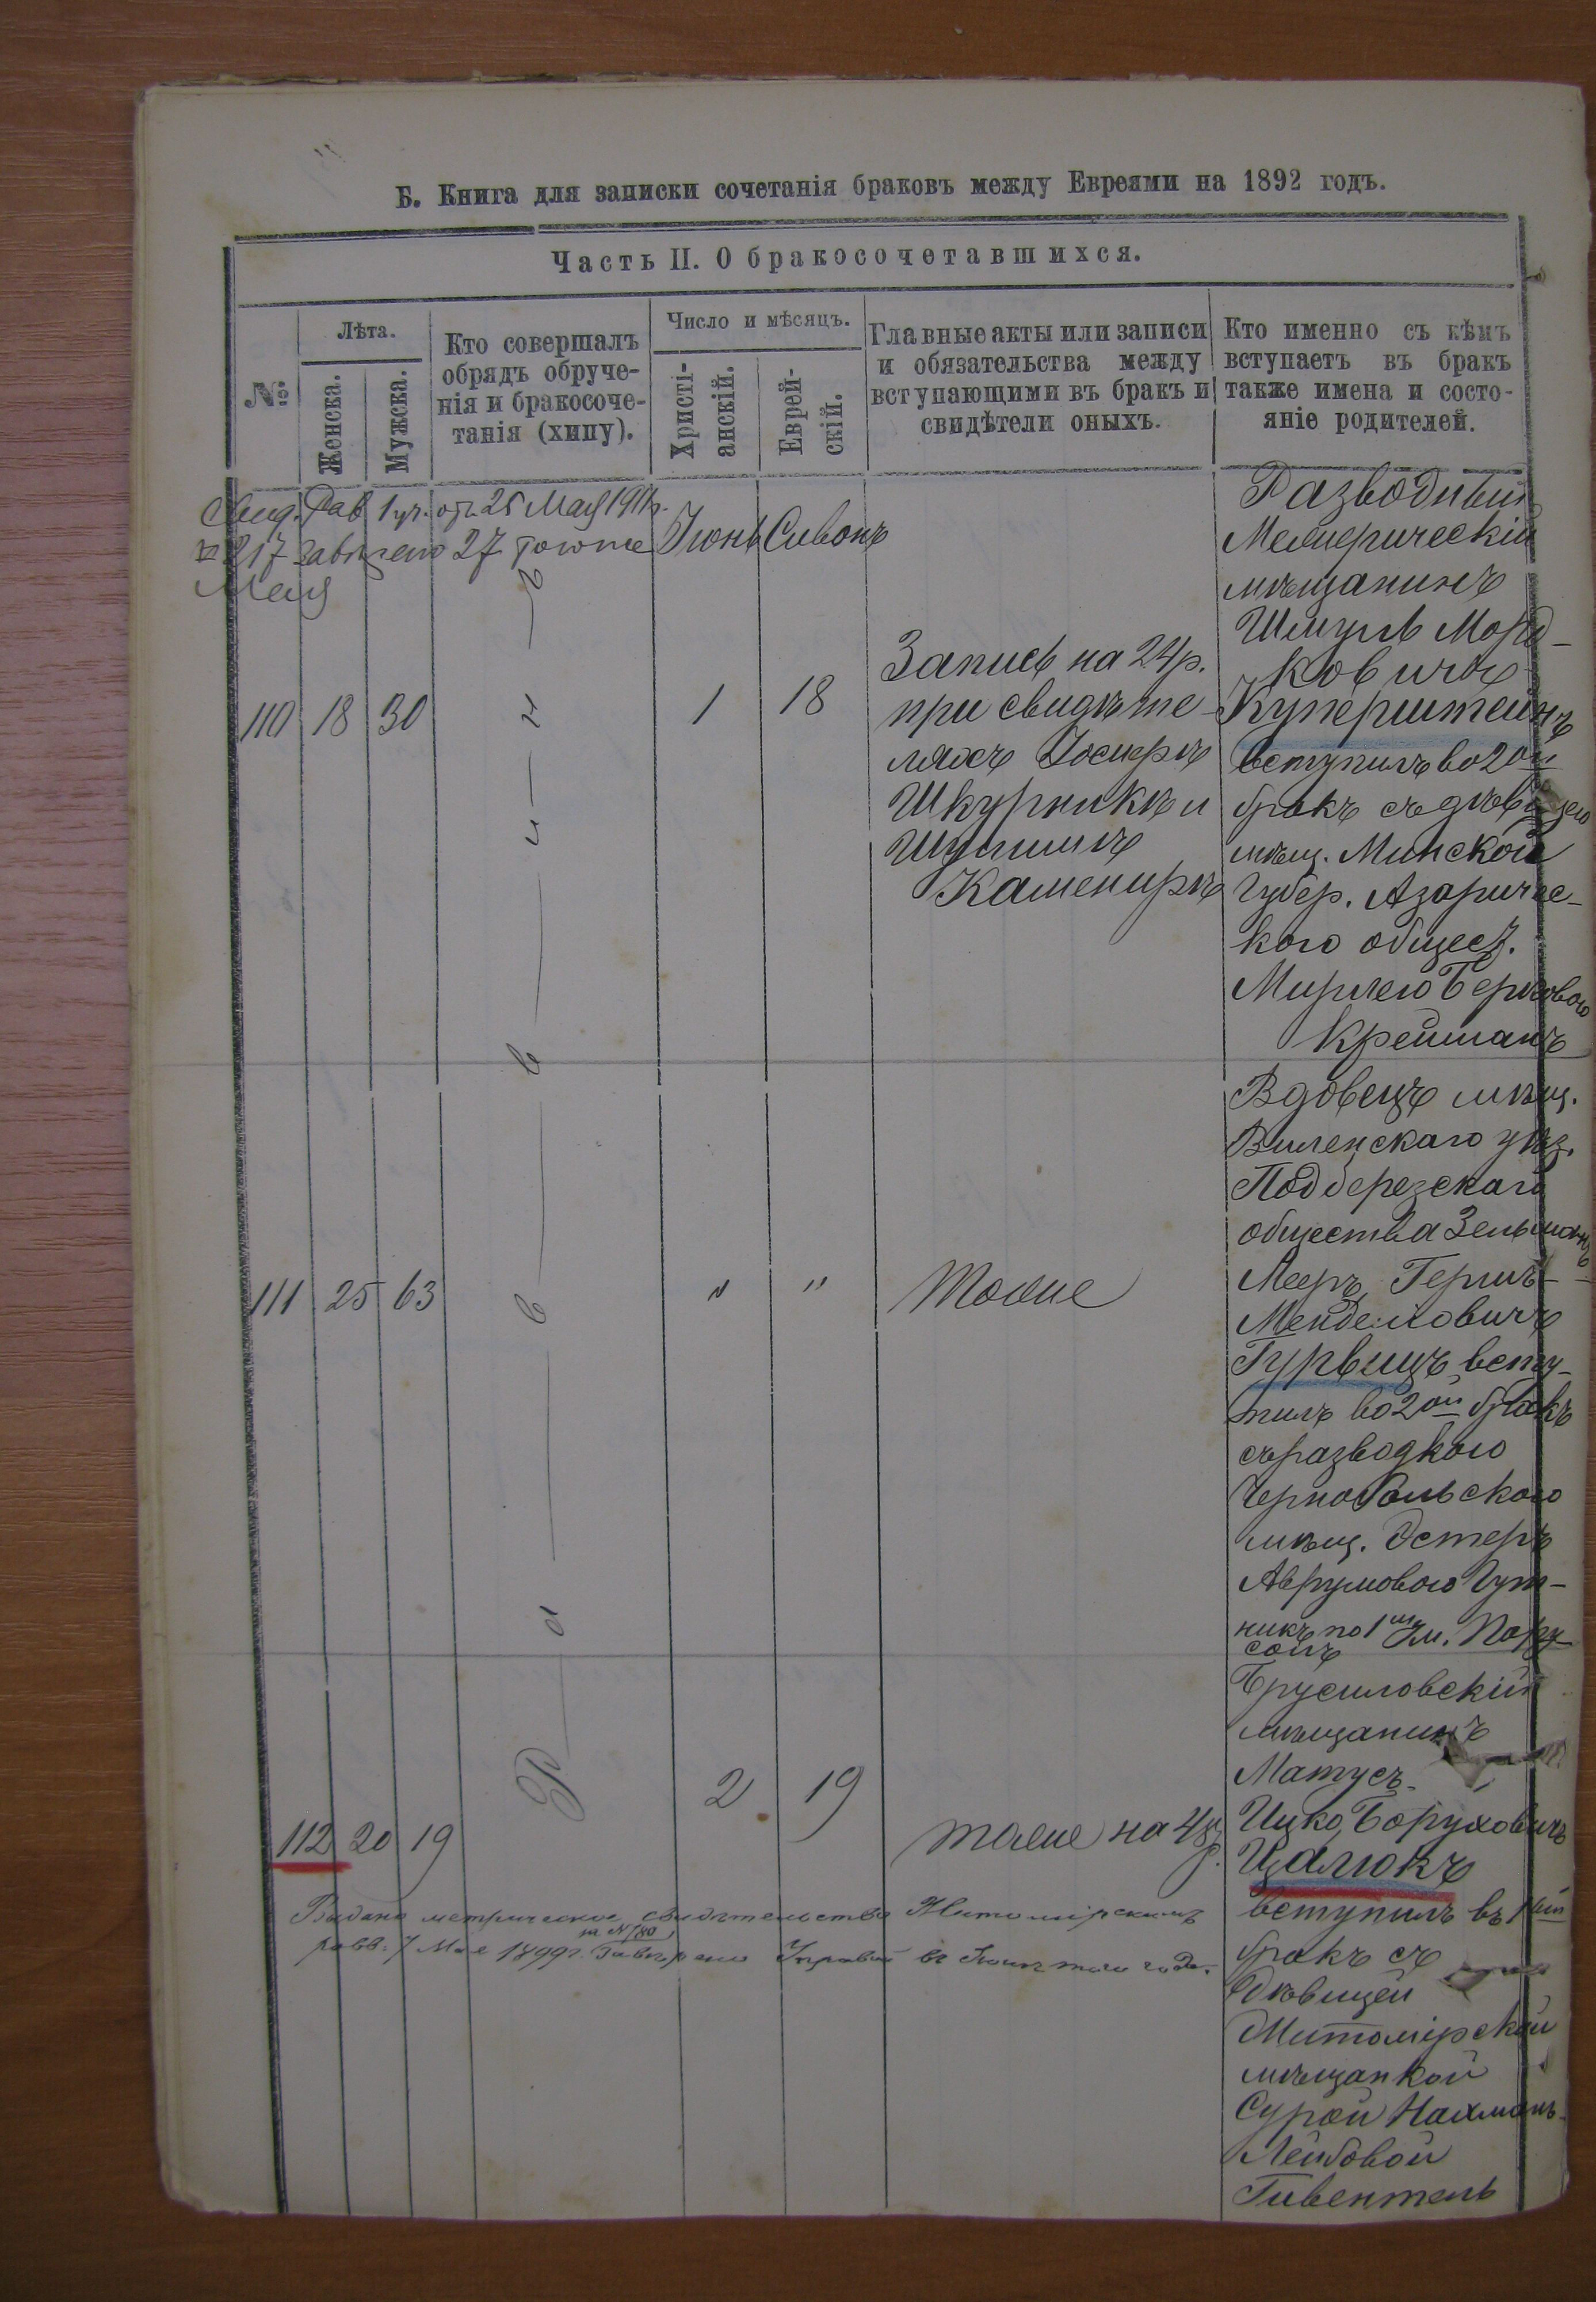 Б. Книга для записки сочетанія браковъ между Евреями на 1892 годъ.
Часть II. О бракосочетавшихся.
№
Лѣта.
Женска.
Мужска.
Кто совершалъ
обрядъ обруче-
нія и бракосоче-
танія (хипу).
Число и мѣсяцъ.
Христі-
анскій.
Еврей-
скій.
Главные акты или записи
и обязательства между
вступающими въ бракъ и
свидѣтели оныхъ.
Кто именно съ кѣмъ
вступаетъ въ бракъ
также имена и состо-
яніе родителей.
Рав 1 уч. от 25 Мая
217 27
Мая
Іюнь Сивонъ
Раввинъ
110 18 30
1 18
Запись на 24 р.
при свидѣте-
ляхъ
Шкурникѣ и
Каменирѣ
Разводный
мѣщанинъ
Шмуль Морд-
ковичъ
Куперштейнъ
вступилъ во 2ой
бракъ съ дѣвицею
мѣщ. Минской
Губер. Азаричес-
кого общес.
Мирлею Берковою
Крейманъ
111 25 63
" "
Тоже
Вдовецъ мѣщ.
Виленскаго уѣз.
Подберезскаго
общества Зельманъ
Мееръ Гершъ-
Менделовичъ
Гурвицъ всту-
пилъ во 2ой бракъ
съ разводкою
Чернобольскою
мѣщ. Эстеръ
Аврумовою Гут-
никъ по 1му м.
112 20 19
2 19
тоже на 48 р.
Брусиловскій
мѣщанинъ
Матусъ-
Ицко Боруховичъ
Цалюкъ
вступилъ въ 1ый
бракъ съ
Дѣвицей
Житомірской
мѣщанкой
Сурой Нахманъ-
Лейбовой
Гивентель
Выдано метрическое свидѣтельство Житомірскимъ
за № 180
равв. 7 Мая 1899 г. Управой въ того года.